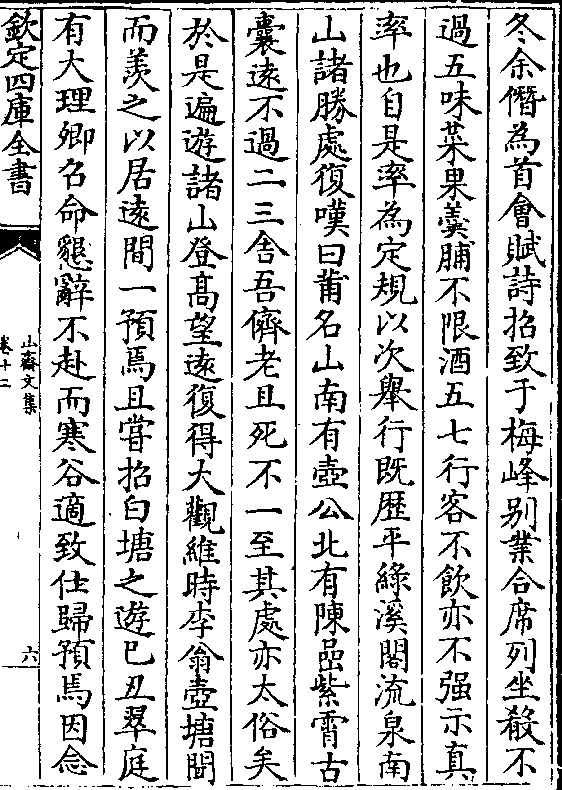 冬余僭為首會賦詩招致于梅峰别業合席列坐殽不
過五味菜果羮脯不限酒五七行客不飲亦不强示真
率也自是率為定規以次舉行既歴平緑溪閣流泉南
山諸勝處復嘆曰莆名山南有壺公北有陳嵒紫霄古
囊遠不過二三舍吾儕老且死不一至其處亦太俗矣
於是遍遊諸山登髙望遠復得大觀維時李翁壺塘聞
而羨之以居遠間一預焉且嘗招白塘之遊已丑翠庭
有大理卿召命懇辭不赴而寒谷適致仕歸預焉因念
欽定四庫全書
山齋文集
卷十二
六